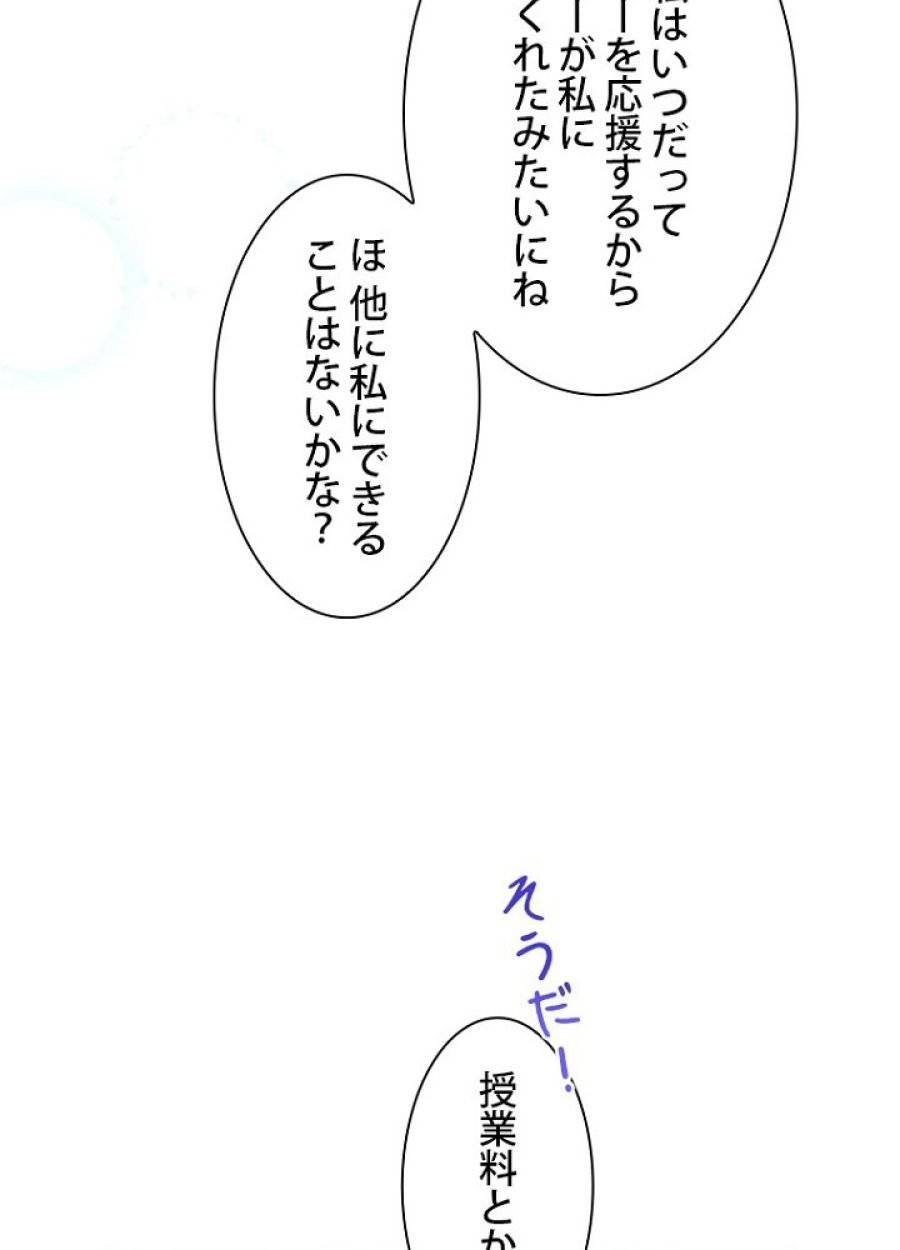 はいつだって
ーを応援するから
ーが私に
くれたみたいにね
ほ 他に私にできる
ことはないかな？
そうだ！
授業料とか